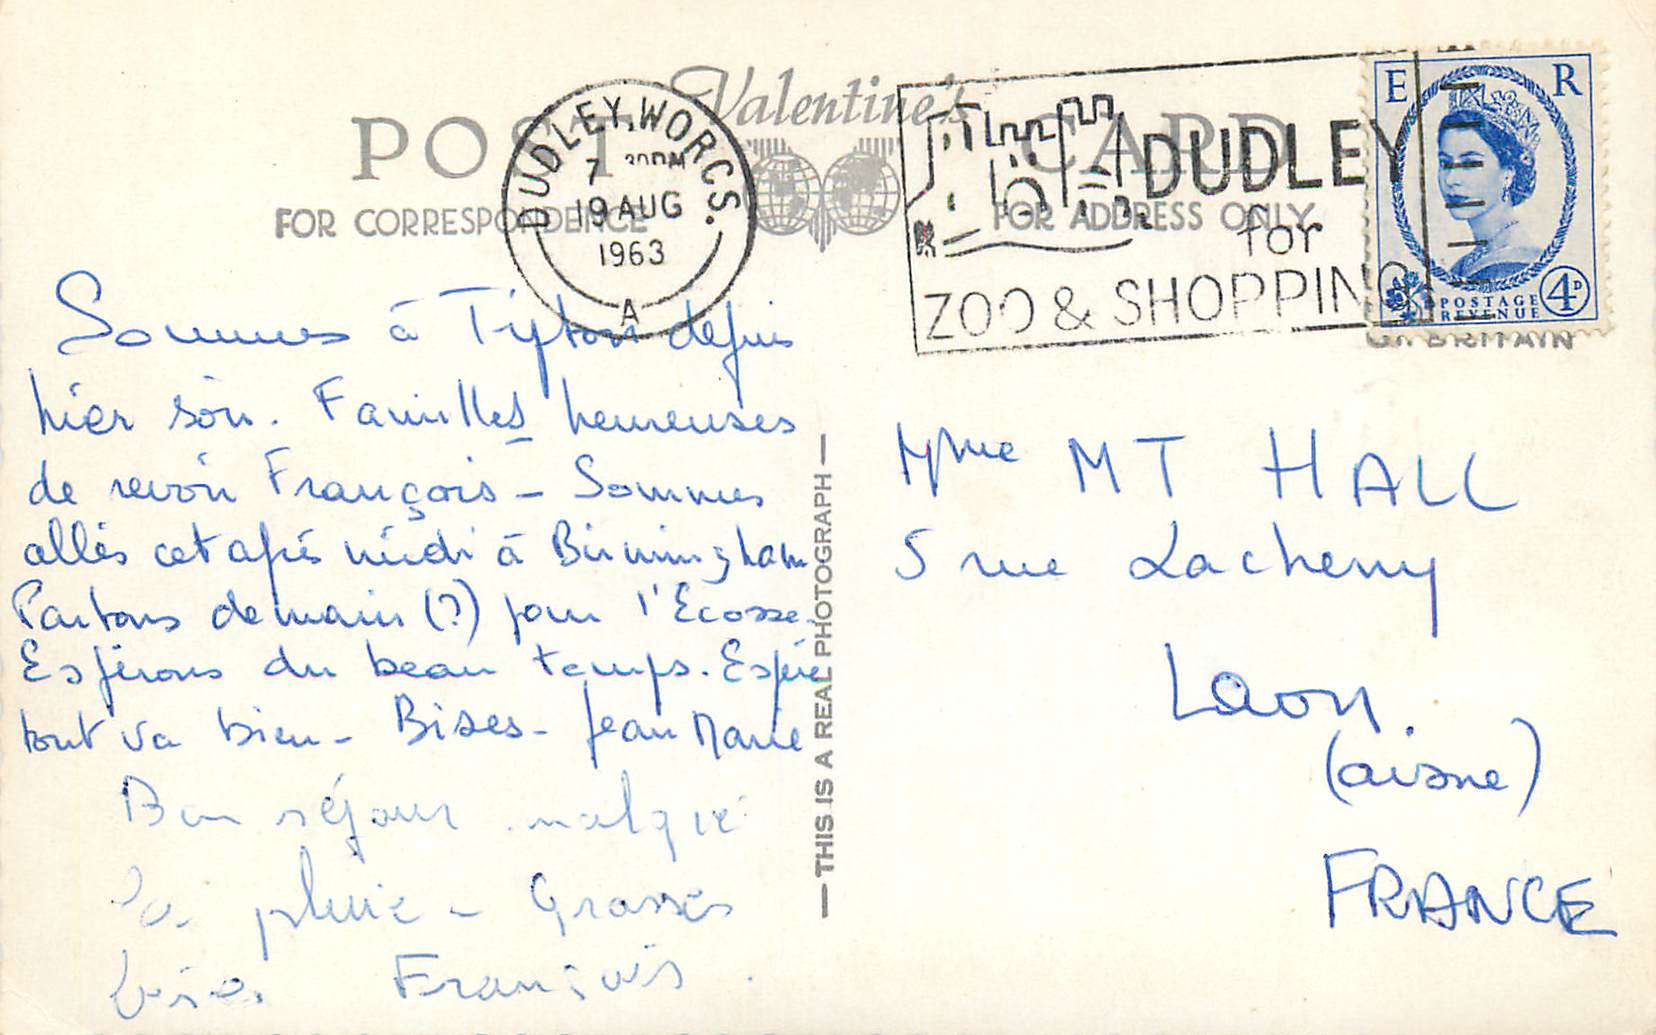 Valentine's
POST CARD
FOR CORRESPONDENCE
FOR ADDRESS ONLY
DUDLEY, WORCS.
7 30PM
19 AUG
1963
A
DUDLEY
for
ZOO & SHOPPING
E R
POSTAGE
REVENUE
4D
BRITAIN
Sommes à Tipton depuis
hier soir. Familles heureuses
de revoir François - Sommes
allés cet après midi à Birmingham
Partons demain (?) pour l'Ecosse.
Espérons du beau temps. Espère
tout va bien - Bises - Jean Marie
Bon séjour malgré
la pluie - Grosses
bises François.
THIS IS A REAL PHOTOGRAPH
Mme MT HALL
5 rue Lacheny
Laon.
(aisne)
FRANCE